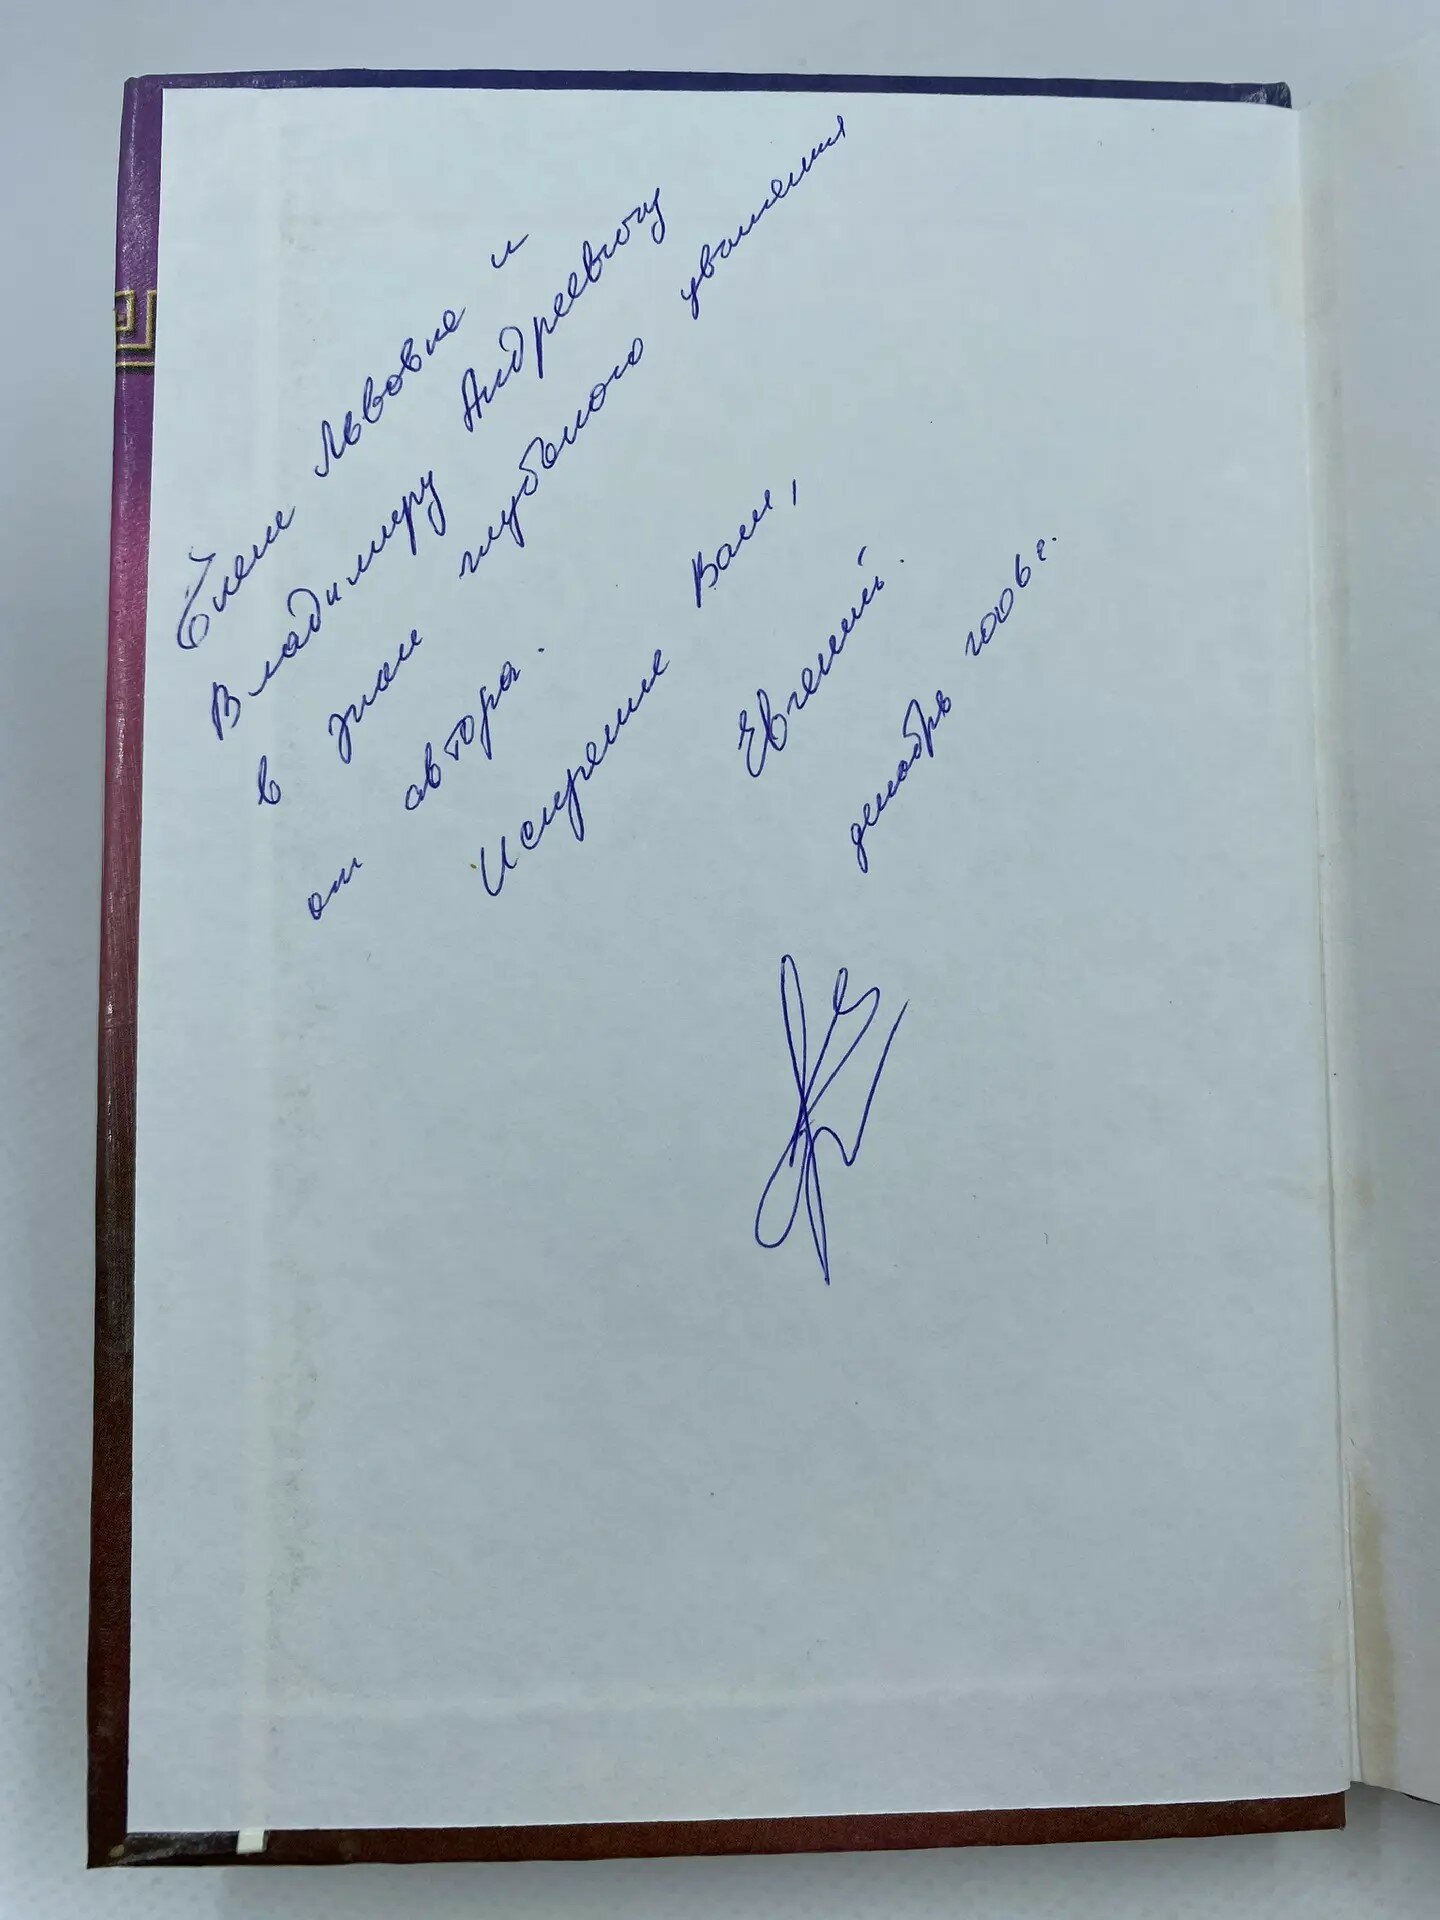 Елене Львовне и
Владимиру Андреевичу
в знак глубокого уважения
от автора.
Искренне Ваш,
Евгений.
декабрь 2006 г.